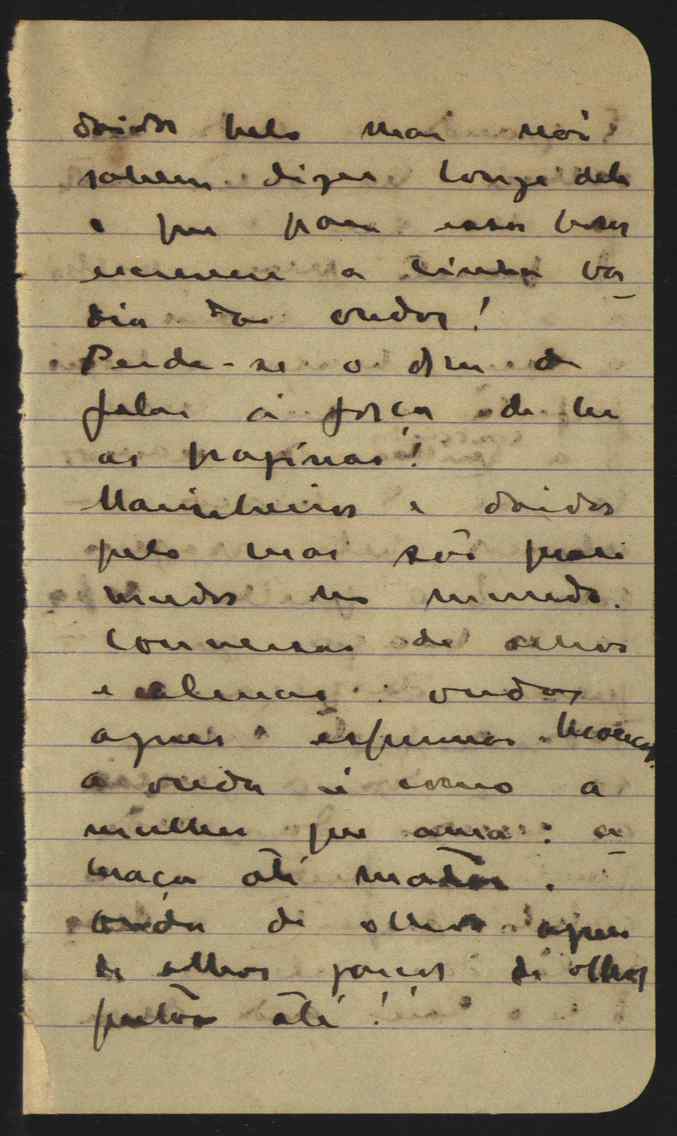 doidos pelo mar não
sabem dizer longe dele
e que para essas
escrevem a linha
dia das ondas!
Perde-se o dom de
falar á força de ler
as paginas!
Marinheiros e doidos
pelo mar são quasi
mudos no mundo.
Conversas de olhos
e almas: ondas
espumas brancas.
a onda é como a
mulher que ama: a
braça até matar.
onda de olhos
de olhos garços de olhos
pretos até!!